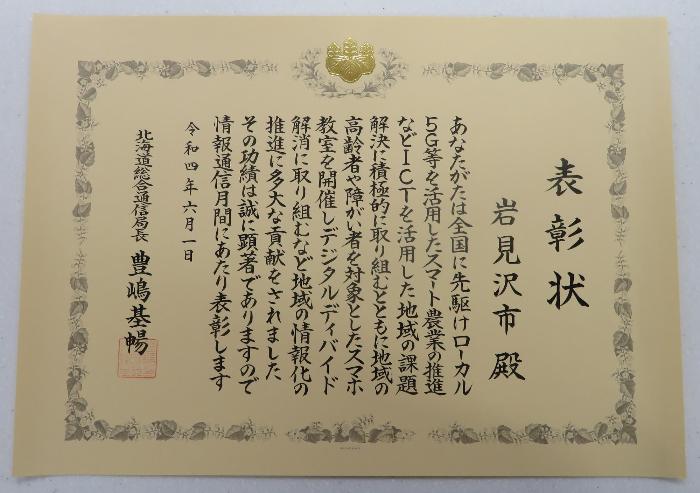 表彰状
岩見沢市 殿
あなたがたは全国に先駆けローカル
5G等を活用したスマート農業の推進
などICTを活用した地域の課題
解決に積極的に取り組むとともに地域の
高齢者や障がい者を対象としたスマホ
教室を開催しデジタルディバイド
解消に取り組むなど地域の情報化の
推進に多大な貢献をされました
その功績は誠に顕著でありますので
情報通信月間にあたり表彰します
令和四年六月一日
北海道総合通信局長 豊嶋基暢